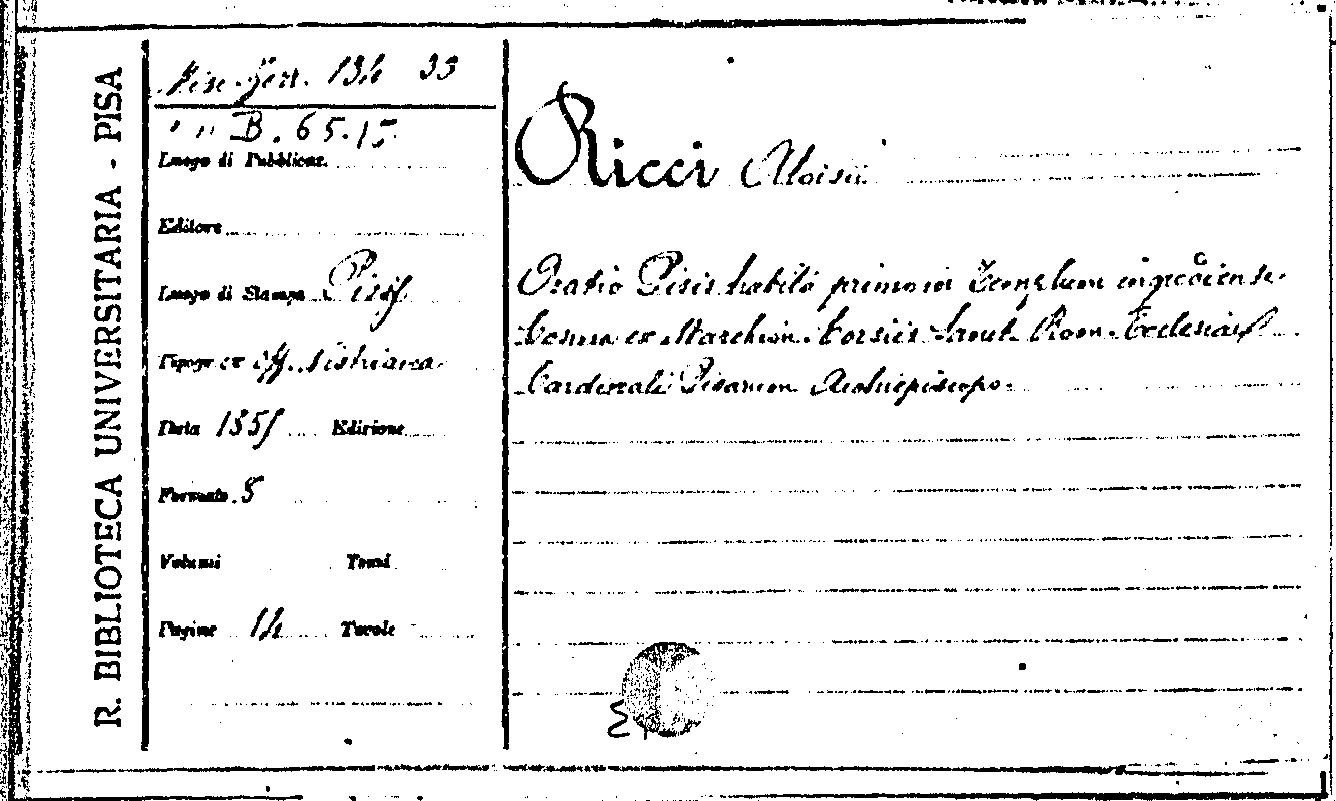 R. BIBLIOTECA UNIVERSITARIA - PISA
Misc. Gert. 134 33
" " B. 65.15
Luogo di Pubblicaz.
Editore
Luogo di Stampa Pisis
Tipogr ex off. Nistriana
Data 1851 Edizione
Formato 8
Volumi Tomi
Pagine 14 Tavole
Ricci Aloisii
Oratio Pisis habita primum Templum ingrediente
Cosma ex Marchion. Corsiis Sanct. Rom. Ecclesiae
Cardinali Pisarum Archiepiscopo.